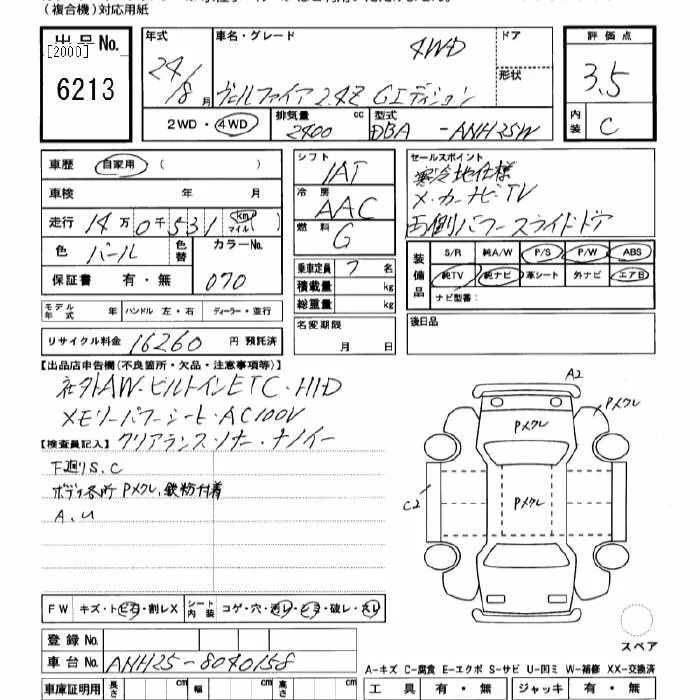 (複合機)対応用紙
出品No.
[2000]
6213
年式
24/8月
車名・グレード
4WD
ヴェルファイア 2.4Z Gエディション
ドア
形状
評価点
3.5
内装
C
2WD・4WD
排気量
2400
cc
型式
DBA -ANH25W
車歴
自家用
( )
車検
年 月
走行
14万0千531
km
マイル
( )
色
パール
色替
カラーNo.
070
保証書
有・無
モデル年式
年
ハンドル
左・右
ディーラー・並行
リサイクル料金
16260
円 預託済
シフト
IAT
冷房
AAC
燃料
G
乗車定員
7
名
積載量
kg
総重量
kg
名変期限
月 日
セールスポイント
寒冷地仕様
メーカーナビTV
両側パワースライドドア
装備品
S/R
純A/W
P/S
P/W
ABS
純TV
純ナビ
革シート
外ナビ
エアB
ナビ型番:
後日品
【出品店申告欄(不良箇所・欠品・注意事項等)】
社外AW・ビルトインETC・HID
メモリーパワーシート・AC100V
クリアランスソナー・ナノイー
【検査員記入】
下廻りS.C
ボディ各所 Pメクレ、鉄粉付着
A.U
A2
Pメクレ
Pメクレ
Pメクレ
C2
FW
キズ・トビ石・割レX
シート内装
コゲ・穴・汚レ・シミ・破レ・スレ
スペア
登録No.
車台No.
ANH25-8040158
A-キズ C-腐食 E-エクボ S-サビ U-凹ミ W-補修 XX-交換済
車庫証明用
長さ
cm
幅
cm
高さ
cm
工具
有・無
ジャッキ
有・無